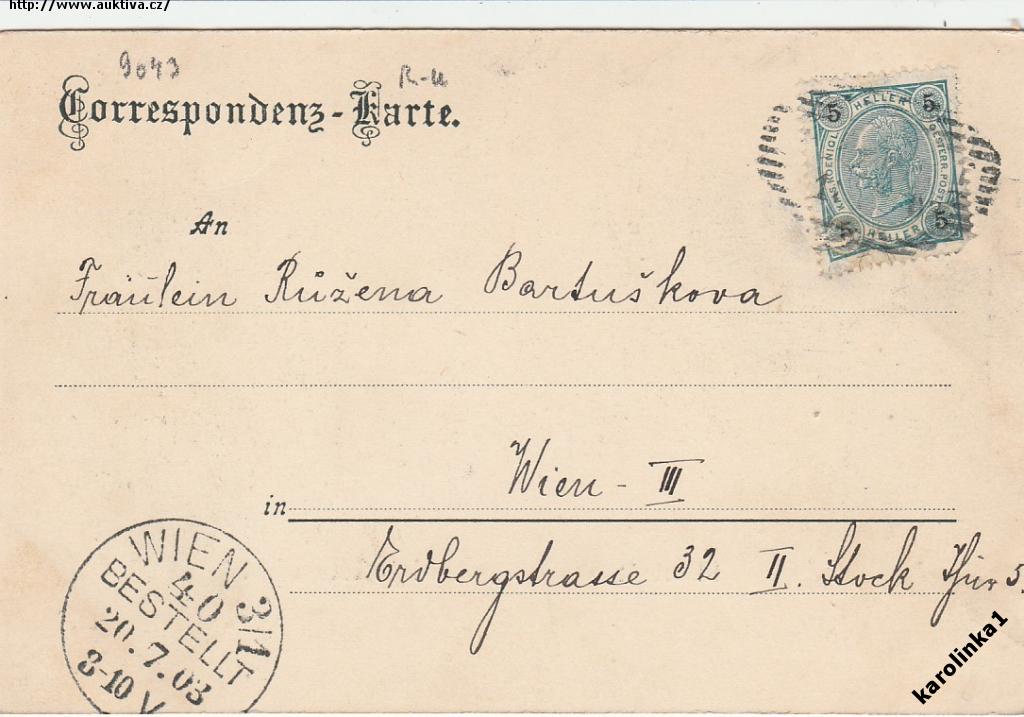 http://www.auktiva.cz/
9043
R-u
Correspondenz-Karte.
5 HELLER 5
KAIS. KOENIGL. OESTERR. POST
5 HELLER 5
An
Fräulein Růžena Bartuškova
Wien - III
in
Erdbergstrasse 32 II. Stock Thür 5.
WIEN 3/1
40
BESTELLT
20.7.03
8-10 V
karolinka1